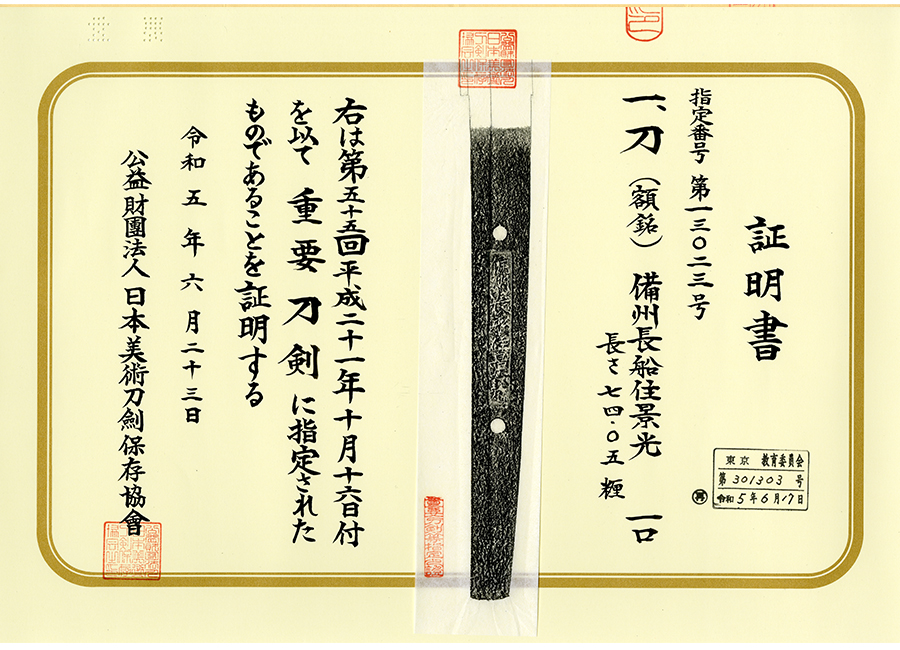 証明書
指定番号 第一三〇二三号
一、刀（額銘） 備州長船住景光 一口
長さ 七四・〇五 糎
東京 教育委員会
第 301303 号
令和 5年 6月 17日
備州長船住景光
右は第五十五回平成二十一年十月十六日付
を以て 重要刀剣 に指定された
ものであることを証明する
令和五年六月二十三日
公益財團法人 日本美術刀劍保存協會